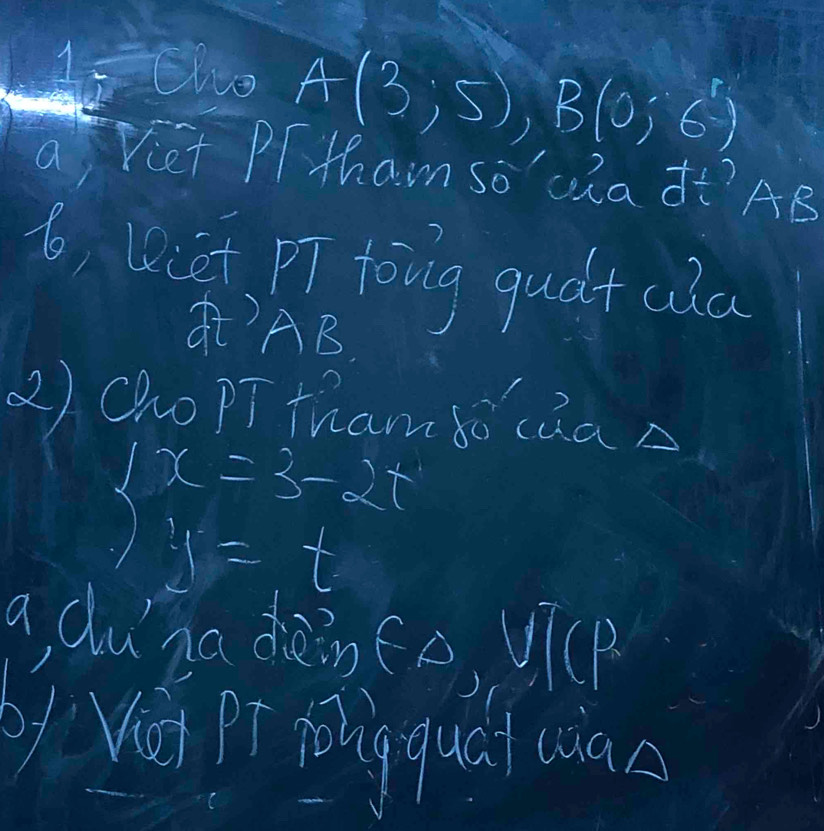 1, Cho A(3; 5), B(0; 6)
a, Viết PT tham số của đt AB
b, Viết PT tổng quát của
đt AB.
2) Cho PT tham số của Δ
{ x = 3 - 2t
y = t
a, chỉ ra điểm ∈ Δ, VTCP
b, Viết PT tổng quát của Δ